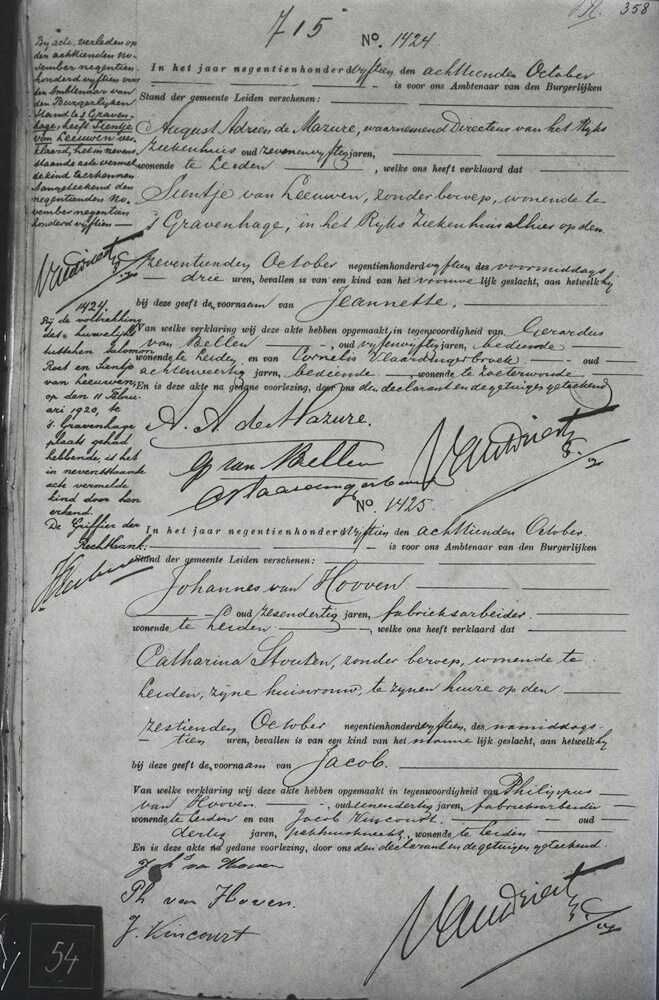 715
358
No. 1424
In het jaar negentienhonderd vyftien den achttienden October
is voor ons Ambtenaar van den Burgerlijken
Stand der gemeente Leiden verschenen:
August Adrien de Mazure, waarnemend Directeur van het Ryks
Ziekenhuis oud zevenenvyftig jaren,
wonende te Leiden, welke ons heeft verklaard dat
Sientje van Leeuwen, zonder beroep, wonende te
's Gravenhage, in het Ryks Ziekenhuis alhier op den
zeventienden October negentienhonderd vyftien des voormiddags
drie uren, bevallen is van een kind van het vrouwelijk geslacht, aan hetwelk hij
bij deze geeft de voornaam van Jeannette.
Van welke verklaring wij deze akte hebben opgemaakt, in tegenwoordigheid van Gerardus
van Bellen, oud vyfenvyftig jaren, bediende
wonende te Leiden, en van Cornelis Vlaardingerbroek oud
achtenveertig jaren, bediende, wonende te Zoeterwoude
En is deze akte na gedane voorlezing, door ons den declarant en de getuigen geteekend
A. A. de Mazure.
G van Bellen
C Vlaardingerbroek
Bij acte, verleden op
den achttienden No-
vember negentien-
honderd vyftien voor
den Ambtenaar van
den Burgerlyken
Stand te 's Graven-
hage, heeft Sientje
van Leeuwen ver-
klaard, het in neven-
staande acte vermel-
de kind te erkennen
Aangeteekend den
negentienden No-
vember negentien
honderd vyftien
1424
Bij de voltrekking
des huwelijks
tusschen Salomon
Roet en Sientje
van Leeuwen,
op den 11 Febru-
ari 1920, te
's Gravenhage
plaats gehad
hebbende, is het
in nevenstaande
acte vermelde
kind door hen
erkend.
De Griffier der
Rechtbank:
No. 1425
In het jaar negentienhonderd vyftien den achttienden October
is voor ons Ambtenaar van den Burgerlijken
Stand der gemeente Leiden verschenen:
Johannes van Hooven
oud zesendertig jaren, fabrieksarbeider
wonende te Leiden, welke ons heeft verklaard dat
Catharina Stouten, zonder beroep, wonende te
Leiden, zyne huisvrouw, te zynen huize op den
zestienden October negentienhonderd vyftien, des namiddags
tien uren, bevallen is van een kind van het mannelijk geslacht, aan hetwelk hij
bij deze geeft de voornaam van Jacob.
Van welke verklaring wij deze akte hebben opgemaakt in tegenwoordigheid van Philippus
van Hooven, oud jaren, fabrieksarbeider
wonende te Leiden en van Jacob Kincourt oud
dertig jaren, pakhuisknecht, wonende te Leiden
En is deze akte na gedane voorlezing, door ons den declarant en de getuigen geteekend.
Joh's van Hoven
Ph van Hoven.
J. Kincourt
54